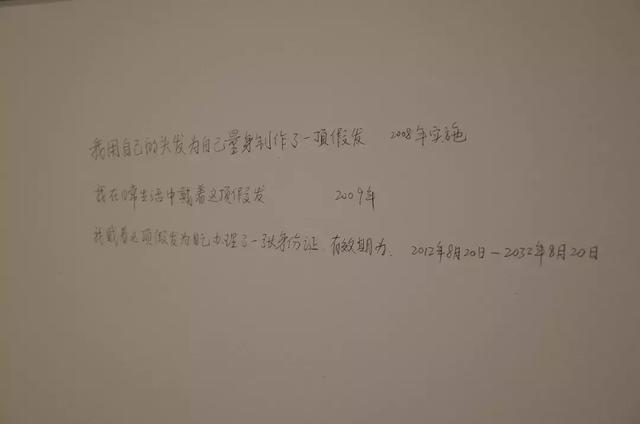 我用自己的头发为自己量身制作了一顶假发 2008年实施
我在日常生活中戴着这顶假发 2009年
我戴着这顶假发为自己办理了一张身份证 有效期为、2012年8月20日—2032年8月20日